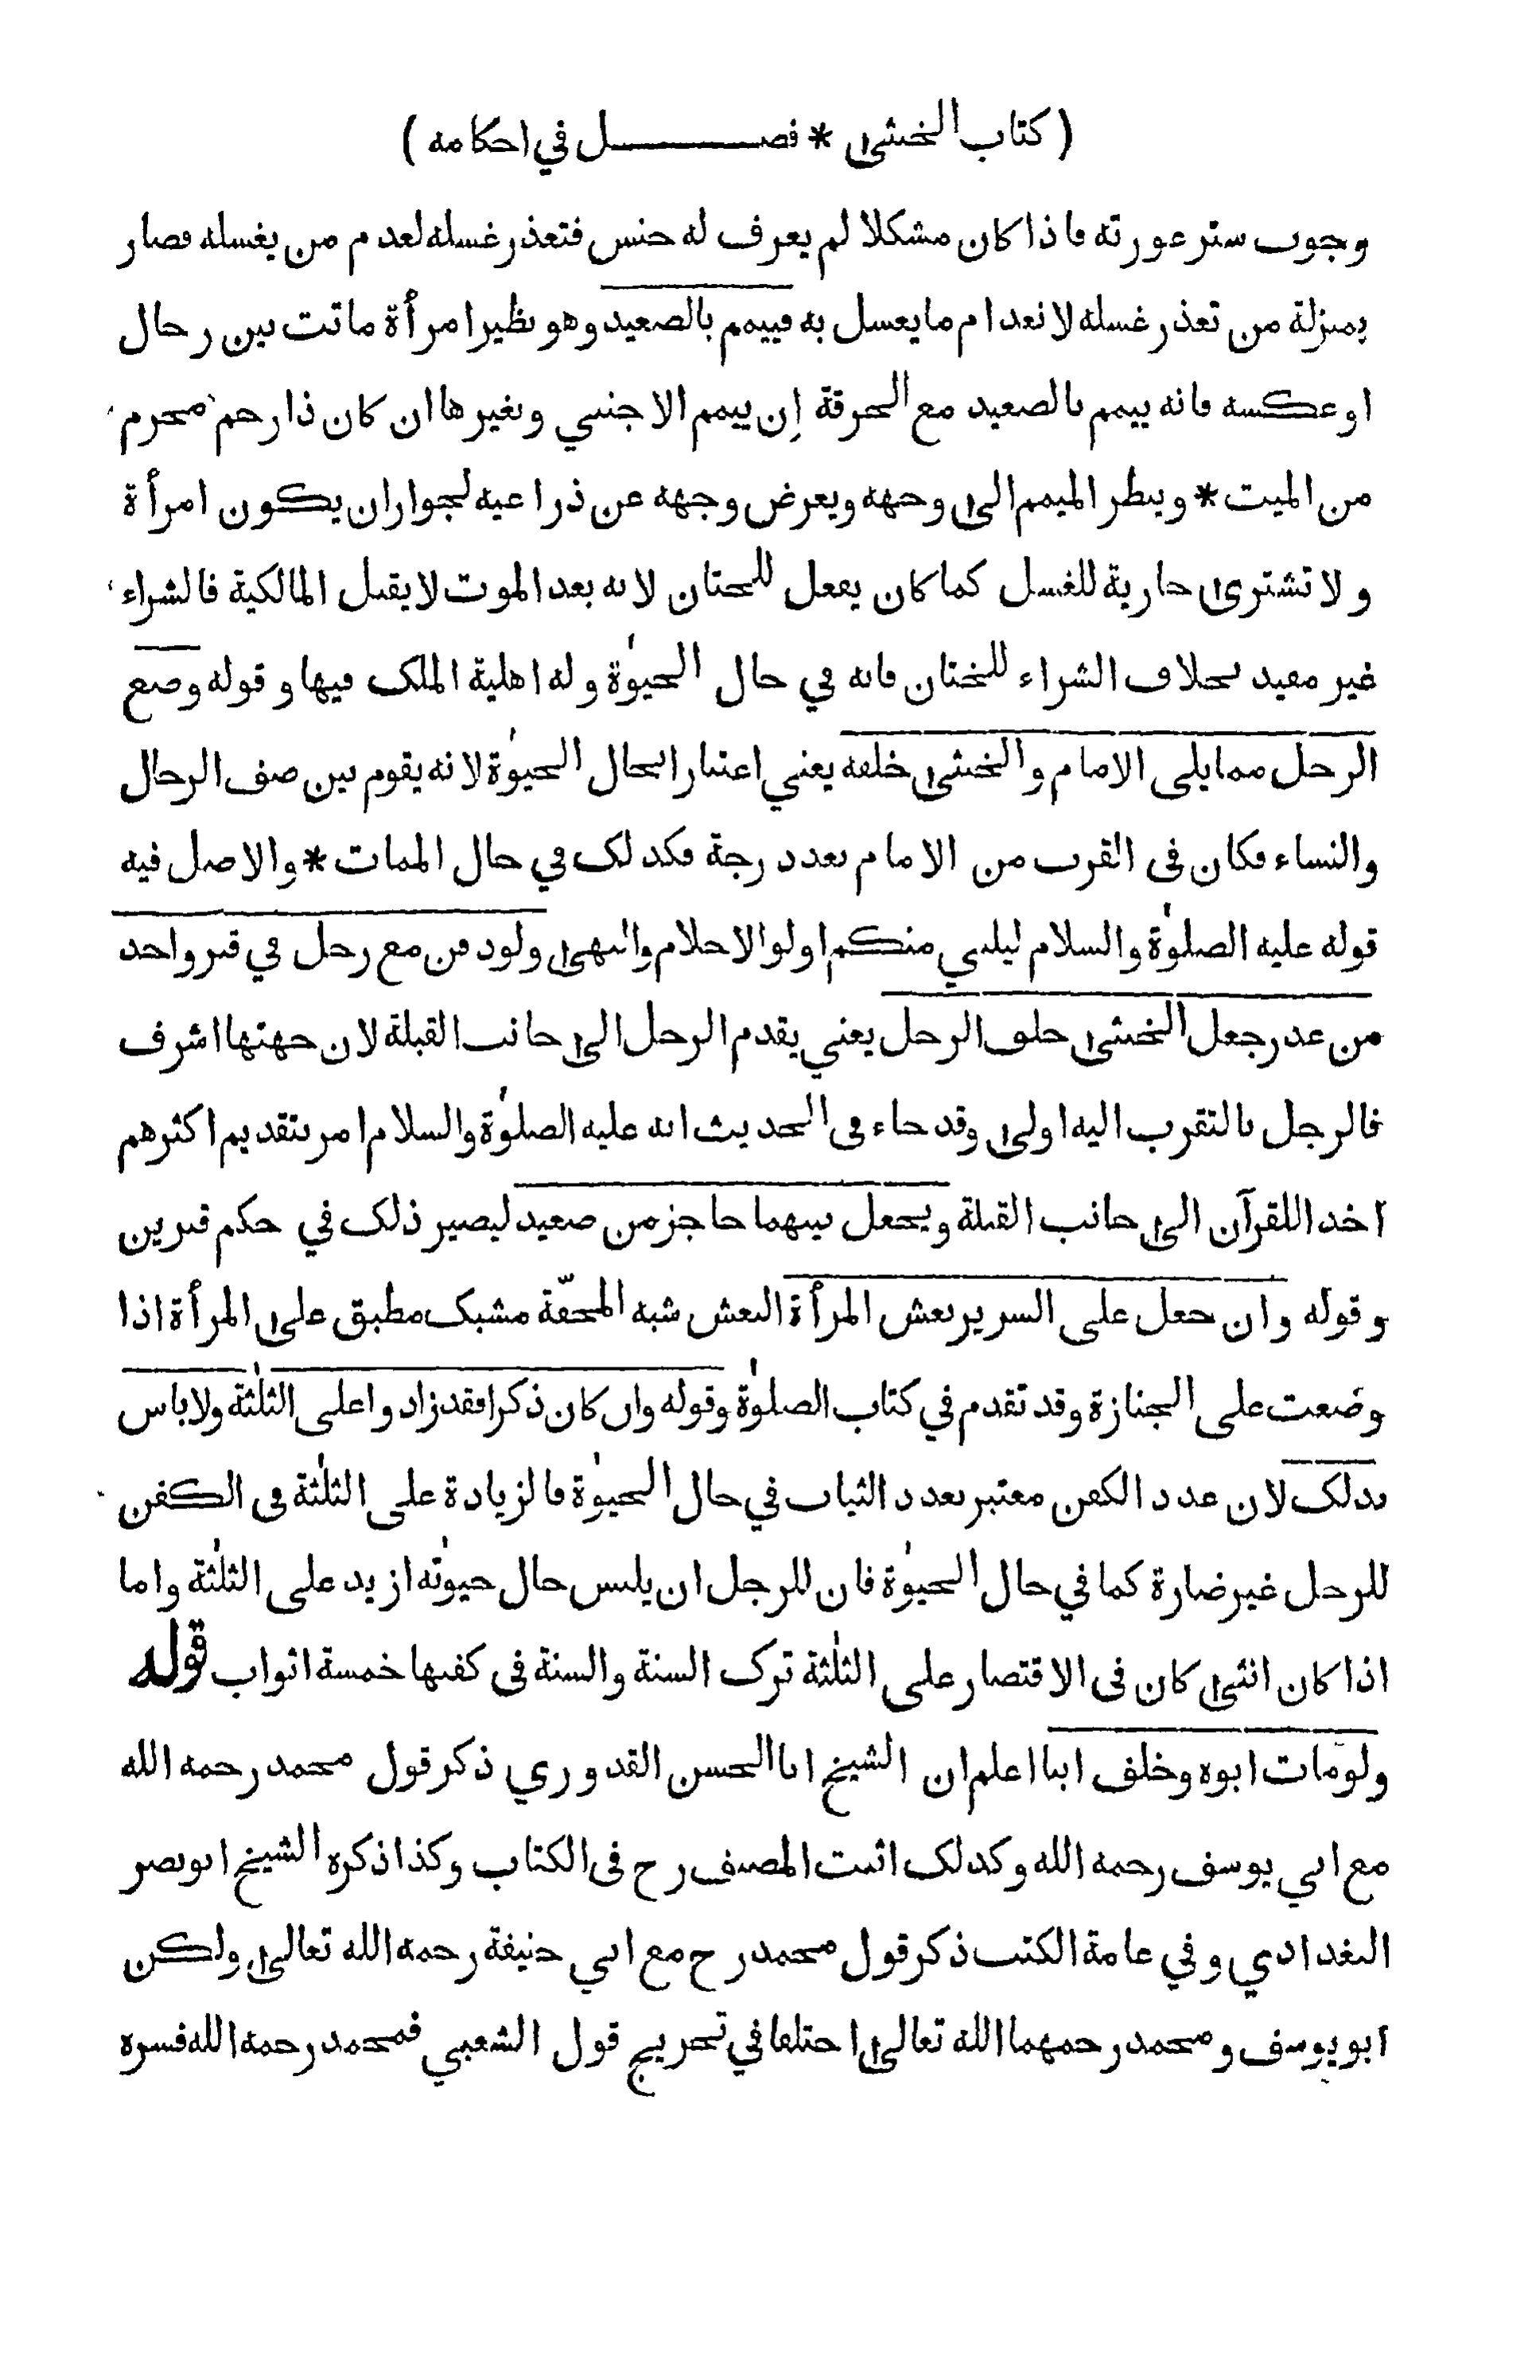 ( كتاب الخنثىٰ * فصـــــــل في احكامه )
وجوب ستر عورته فاذا كان مشكلا لم يعرف له جنس فتعذر غسله لعدم من يغسله فصار
بمنزلة من تعذر غسله لانعدام ما يغسل به فييمم بالصعيد وهو نظير امرأة ماتت بين رجال
او عكسه فانه ييمم بالصعيد مع الخرقة إن ييمم الاجنبي وبغيرها ان كان ذا رحم محرم
من الميت * وينظر الميمم الىٰ وجهه ويعرض وجهه عن ذراعيه لجواز ان يكون امرأة
ولا تشترىٰ جارية للغسل كما كان يفعل للختان لانه بعد الموت لا يقبل المالكية فالشراء
غير مفيد بخلاف الشراء للختان فانه في حال الحيوٰة وله اهلية الملك فيها وقوله وضع
الرجل مما يلي الامام والخنثىٰ خلفه يعني اعتبارا بحال الحيوٰة لانه يقوم بين صف الرجال
والنساء فكان في القرب من الامام بعد درجة فكذلك في حال الممات * والاصل فيه
قوله عليه الصلوٰة والسلام ليلني منكم اولوا الاحلام والنهىٰ ولو دفن مع رجل في قبر واحد
من عذر جعل الخنثىٰ خلف الرجل يعني يقدم الرجل الىٰ جانب القبلة لان جهتها اشرف
فالرجل بالتقرب اليه اولىٰ وقد جاء في الحديث انه عليه الصلوٰة والسلام امر بتقديم اكثرهم
اخذا للقرآن الىٰ جانب القبلة ويجعل بينهما حاجز من صعيد ليصير ذلك في حكم قبرين
وقوله وان جعل على السرير نعش المرأة النعش شبه المحفّة مشبك مطبق علىٰ المرأة اذا
وضعت على الجنازة وقد تقدم في كتاب الصلوٰة وقوله وان كان ذكرا فقد زادوا على الثلٰثة ولا باس
بذلك لان عدد الكفن معتبر بعدد الثياب في حال الحيوٰة فالزيادة على الثلٰثة في الكفن
للرجل غير ضارة كما في حال الحيوٰة فان للرجل ان يلبس حال حيوٰته ازيد على الثلٰثة واما
اذا كان انثىٰ كان في الاقتصار على الثلٰثة ترك السنة والسنة في كفنها خمسة اثواب قوله
ولو مات ابوه وخلف ابنا اعلم ان الشيخ ابا الحسن القدوري ذكر قول محمد رحمه الله
مع ابي يوسف رحمه الله وكذلك اثبت المصنف رح في الكتاب وكذا ذكره الشيخ ابو نصر
البغدادي وفي عامة الكتب ذكر قول محمد رح مع ابي حنيفة رحمه الله تعالىٰ ولكن
ابو يوسف ومحمد رحمهما الله تعالىٰ اختلفا في تخريج قول الشعبي فمحمد رحمه الله فسره